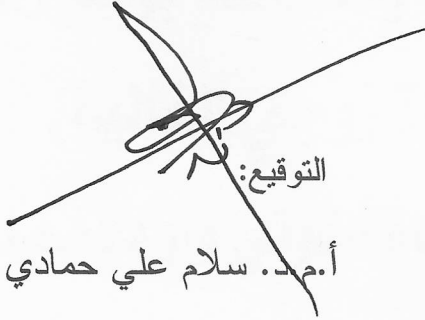 التوقيع:
أ.م.د. سلام علي حمادي